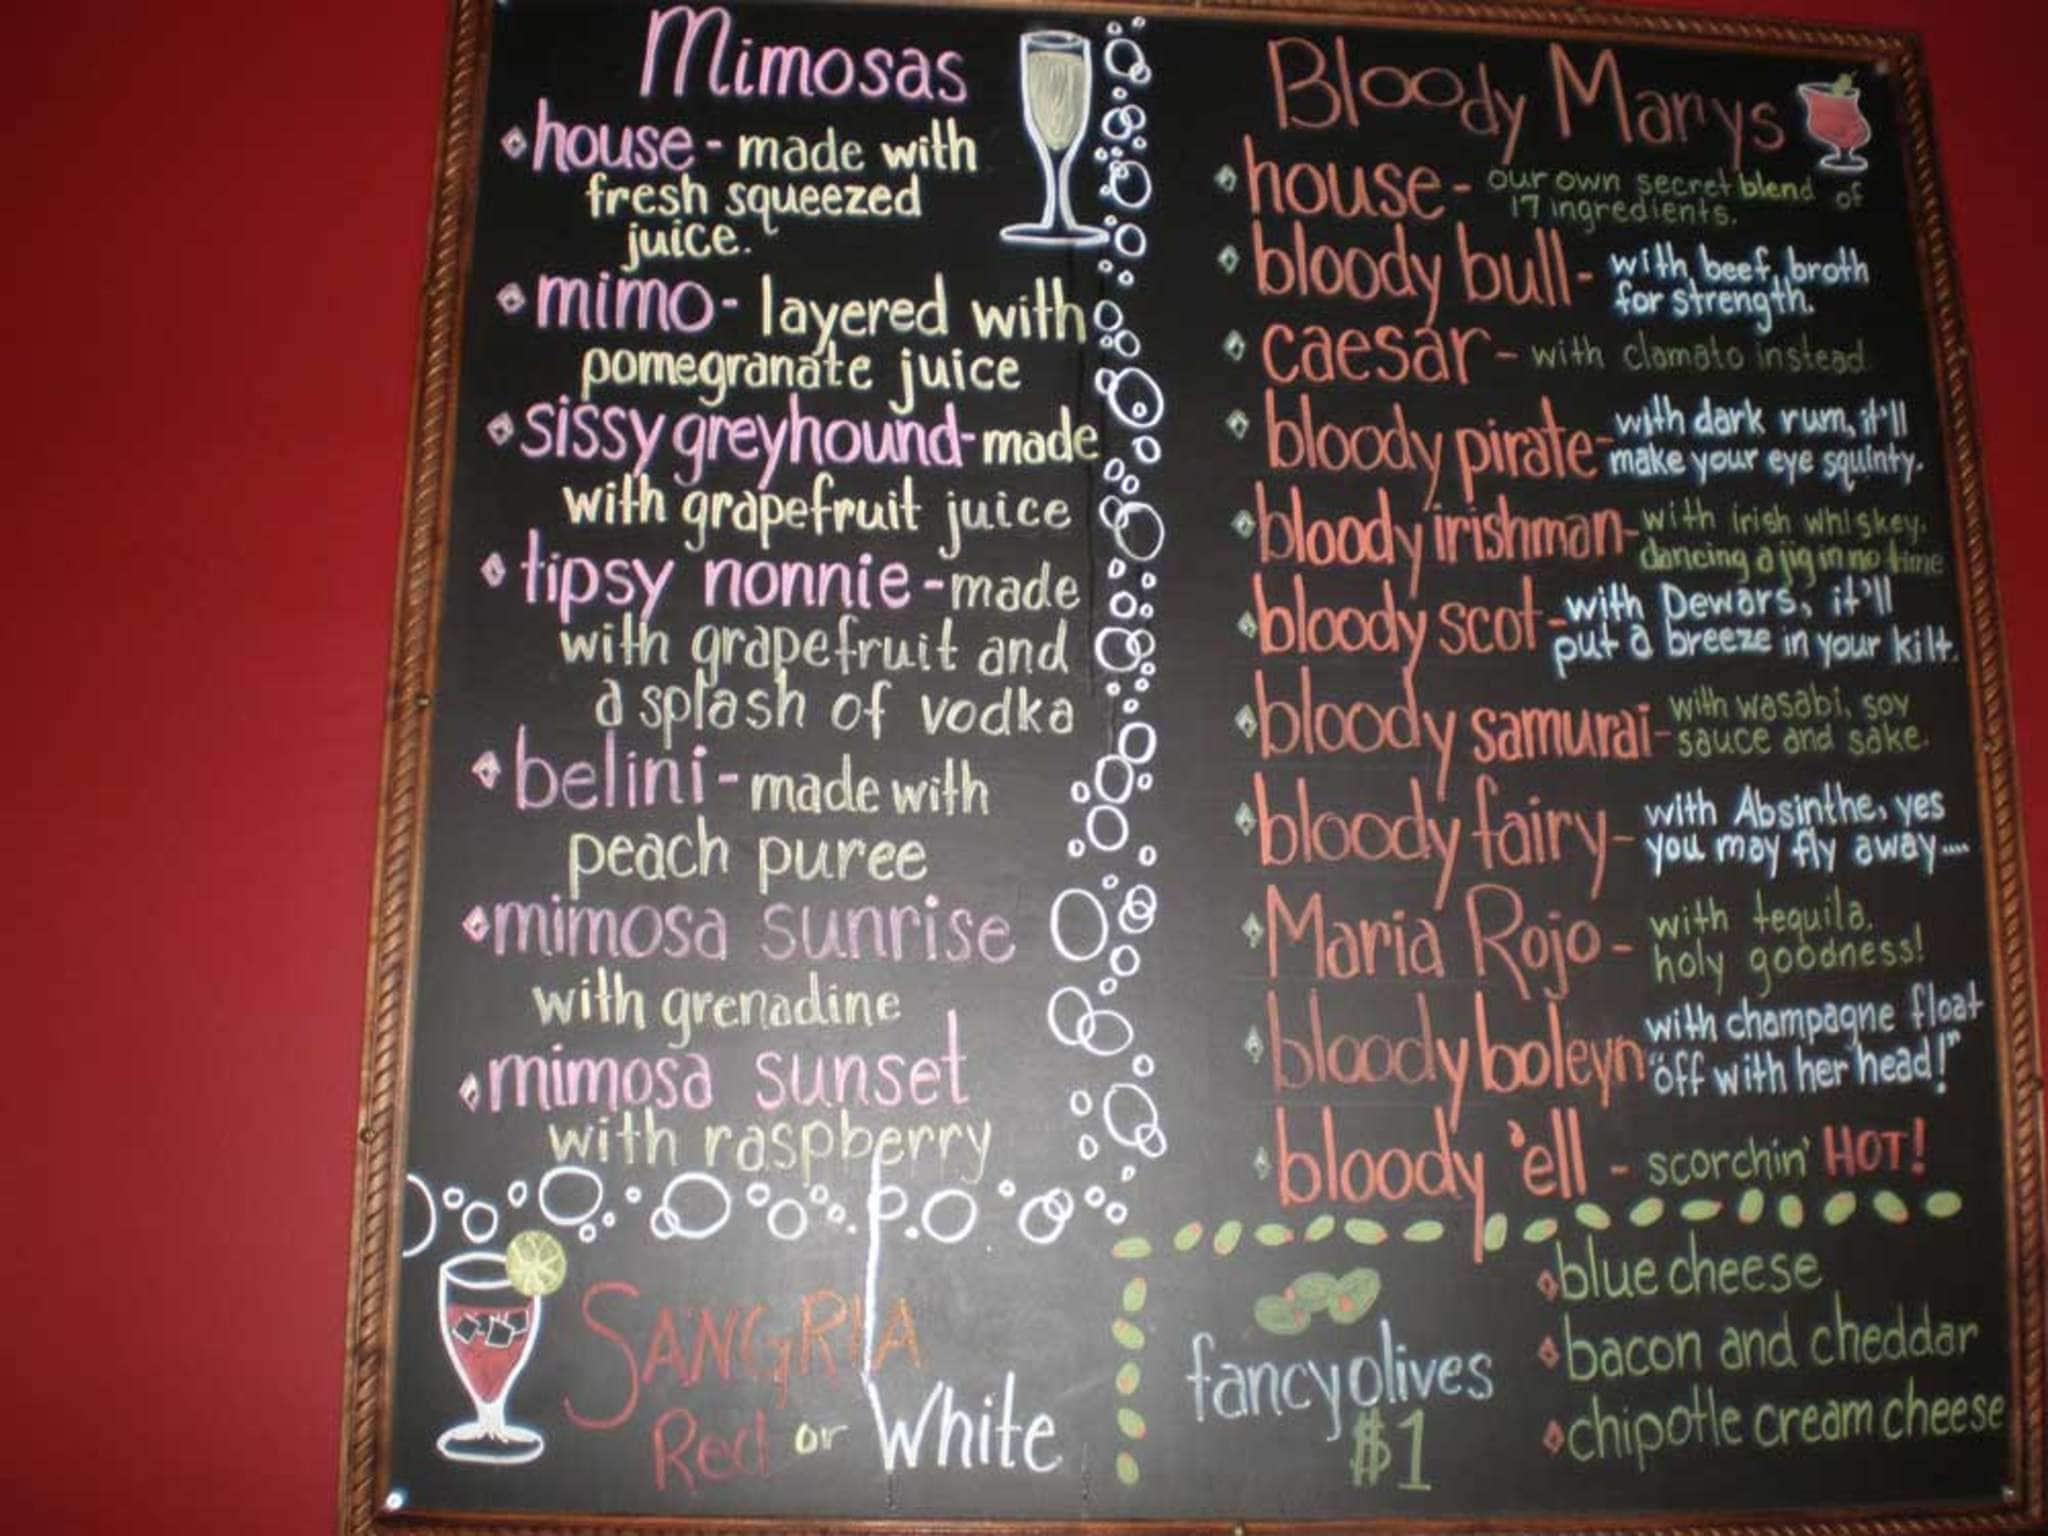 Mimosas
house - made with
fresh squeezed
juice.
mimo - layered with
pomegranate juice
sissy greyhound - made
with grapefruit juice
tipsy nonnie - made
with grapefruit and
a splash of vodka
belini - made with
peach puree
mimosa sunrise
with grenadine
mimosa sunset
with raspberry
SANGRIA
Red or White
Bloody Marys
house - our own secret blend of
17 ingredients.
bloody bull - with beef broth
for strength.
caesar - with clamato instead
bloody pirate - with dark rum, it'll
make your eye squinty.
bloody irishman - with irish whiskey.
dancing a jig in no time
bloody scot - with Dewars, it'll
put a breeze in your kilt.
bloody samurai - with wasabi, soy
sauce and sake.
bloody fairy - with Absinthe, yes
you may fly away....
Maria Rojo - with tequila,
holy goodness!
bloody boleyn with champagne float
"off with her head!"
bloody 'ell - scorchin' HOT!
fancy olives
$1
blue cheese
bacon and cheddar
chipotle cream cheese